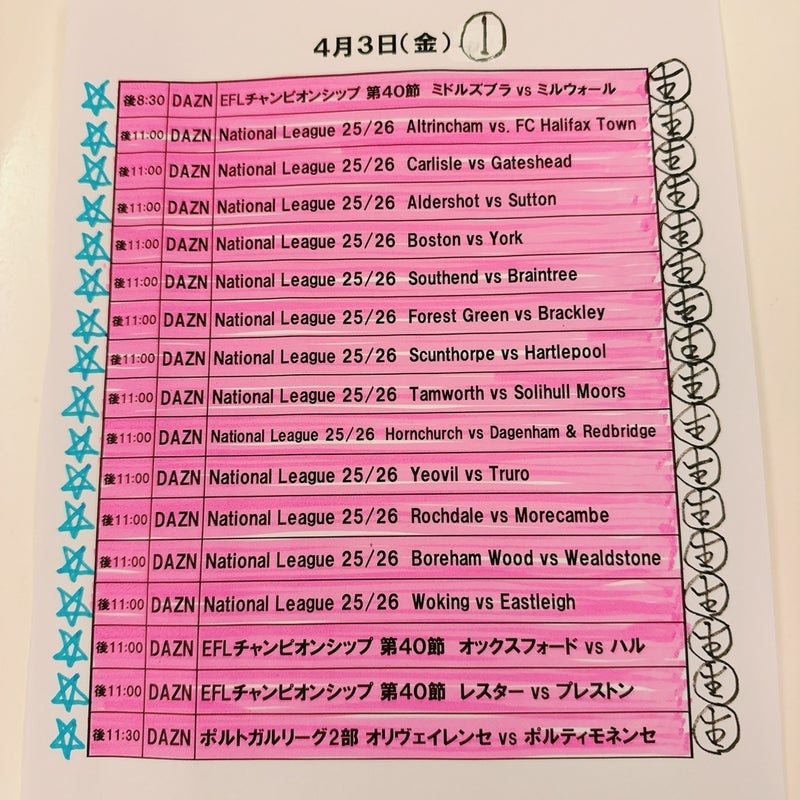 4月3日(金) ①
後8:30 DAZN EFLチャンピオンシップ 第40節 ミドルズブラ vs ミルウォール 生
後11:00 DAZN National League 25/26 Altrincham vs. FC Halifax Town 生
後11:00 DAZN National League 25/26 Carlisle vs Gateshead 生
後11:00 DAZN National League 25/26 Aldershot vs Sutton 生
後11:00 DAZN National League 25/26 Boston vs York 生
後11:00 DAZN National League 25/26 Southend vs Braintree 生
後11:00 DAZN National League 25/26 Forest Green vs Brackley 生
後11:00 DAZN National League 25/26 Scunthorpe vs Hartlepool 生
後11:00 DAZN National League 25/26 Tamworth vs Solihull Moors 生
後11:00 DAZN National League 25/26 Hornchurch vs Dagenham & Redbridge 生
後11:00 DAZN National League 25/26 Yeovil vs Truro 生
後11:00 DAZN National League 25/26 Rochdale vs Morecambe 生
後11:00 DAZN National League 25/26 Boreham Wood vs Wealdstone 生
後11:00 DAZN National League 25/26 Woking vs Eastleigh 生
後11:00 DAZN EFLチャンピオンシップ 第40節 オックスフォード vs ハル 生
後11:00 DAZN EFLチャンピオンシップ 第40節 レスター vs プレストン 生
後11:30 DAZN ポルトガルリーグ2部 オリヴェイレンセ vs ポルティモネンセ 生